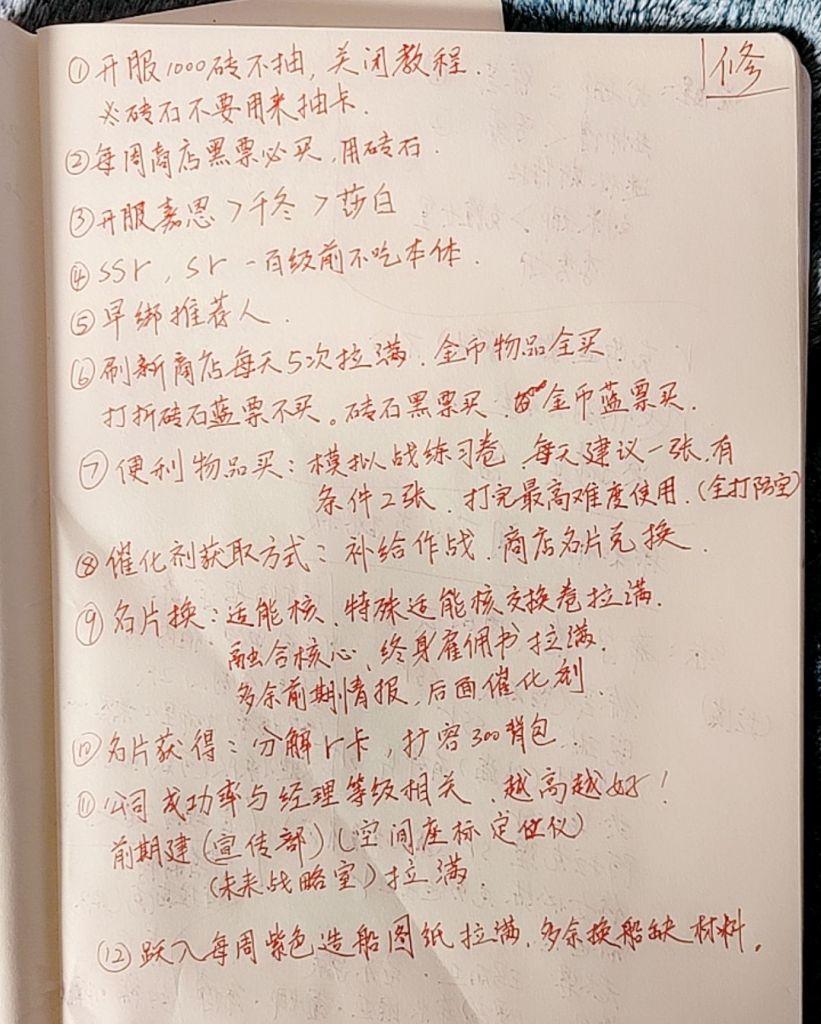 修
①开服1000砖不抽,关闭教程.
※砖石不要用来抽卡.
②每周商店黑票必买,用砖石.
③开服嘉恩>千冬>莎白
④SSr,Sr一百级前不吃本体.
⑤早绑推荐人.
⑥刷新商店每天5次拉满.金币物品全买.
打折砖石蓝票不买。砖石黑票买.金币蓝票买.
⑦便利物品买:模拟战练习卷.每天建议一张.有
条件2张.打完最高难度使用.(全打防空)
⑧催化剂获取方式:补给作战.商店名片兑换.
⑨名片换:适能核.特殊适能核交换卷拉满.
融合核心、终身雇佣书拉满.
多余前期情报,后面催化剂
⑩名片获得:分解r卡,扩容300背包.
⑪公司成功率与经理等级相关.越高越好!
前期建(宣传部)(空间座标定位仪)
(未来战略室)拉满.
⑫跃入每周紫色造船图纸拉满.多余换船缺材料。